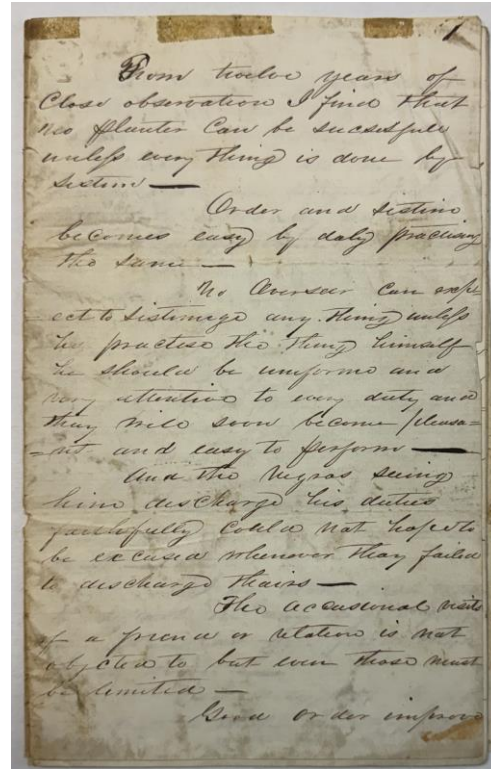 1
From twelve years of
Close observation I find that
no Planter Can be sucsesfull
unless every thing is done by
Sistim —
Order and Sistim
becomes easy by daly practising
the same —
No Oversear can exp=
ect to Sistimige any thing unless
he practise the thing himself
he should be uniforme and
very attentive to every duty and
they will soon become pleasa=
=nt and easy to perform —
And the Negros seeing
him discharge his duties
faithfully could not hope to
be excused whenever they failed
to discharge thairs —
The accasional visits
of a friend or relation is not
objcted to but even those must
be limited —
Good order improve